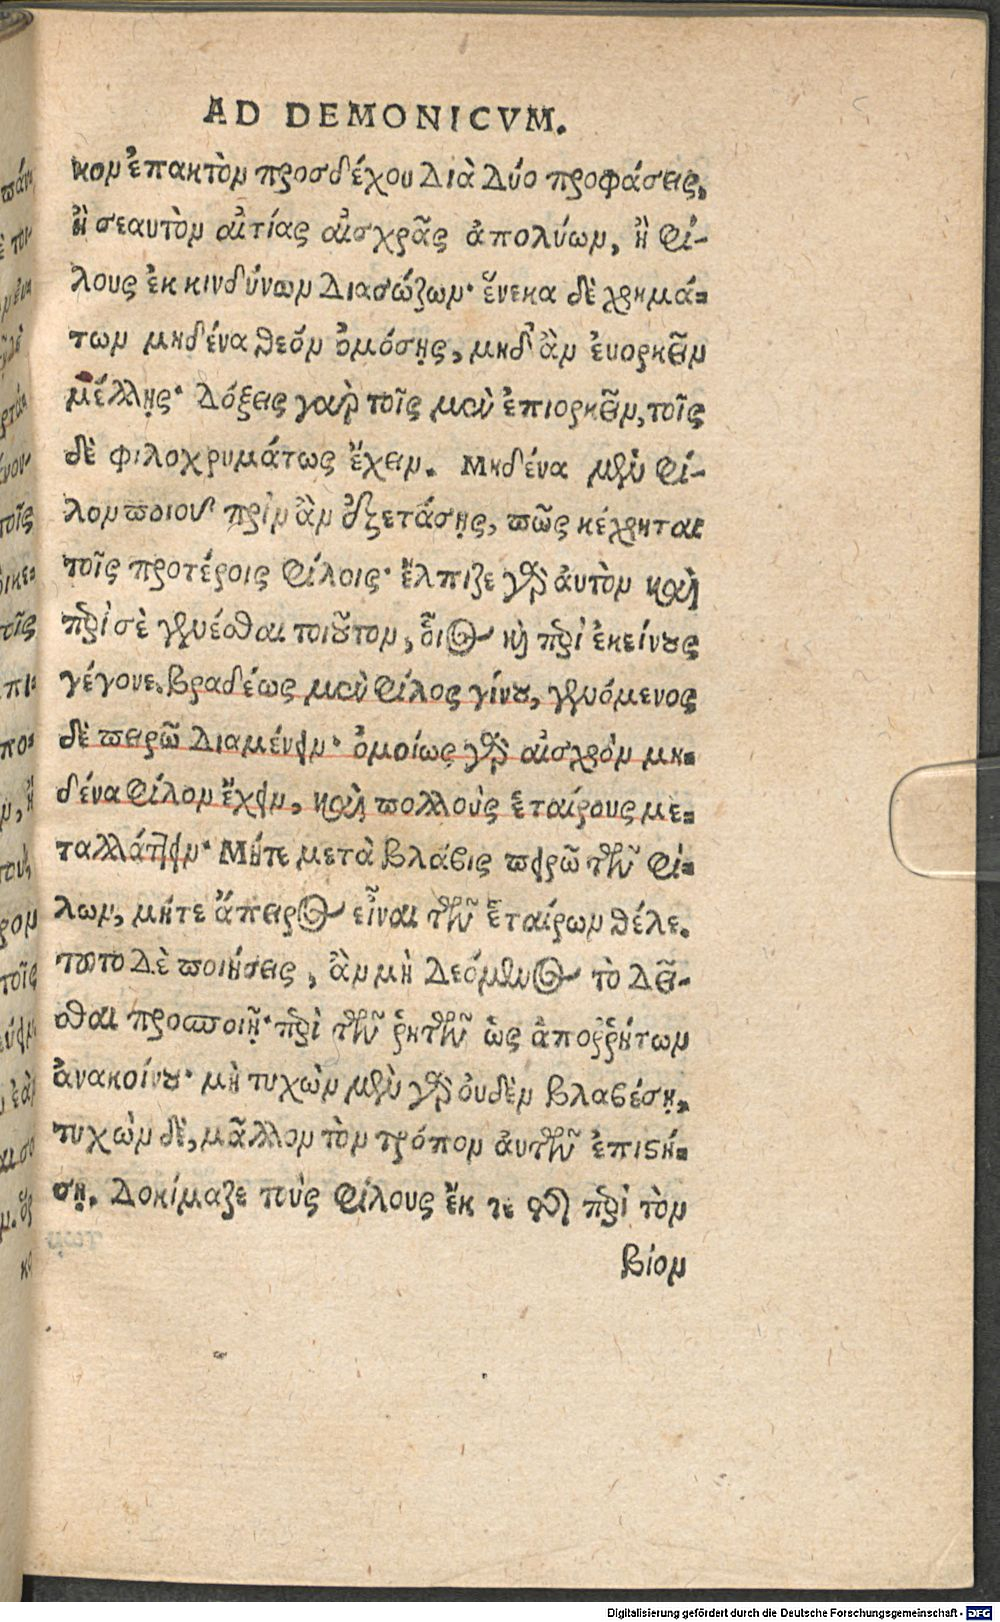 AD DEMONICVM.
κον ἐπακτὸν προσδέχου διὰ δύο προφάσεις,
ἢ σεαυτὸν αἰτίας αἰσχρᾶς ἀπολύων, ἢ φί-
λους ἐκ κινδύνων διασώζων· ἕνεκα δὲ χρημά-
των μηδένα θεὸν ὀμόσῃς, μηδ' ἂν ἐυορκεῖν
μέλλῃς· δόξεις γὰρ τοῖς μὲν ἐπιορκεῖν, τοῖς
δὲ φιλοχρυμάτως ἔχειν. Μηδένα μὲν φί-
λον ποιοῦ πρὶν ἂν ἐξετάσῃς, πῶς κέχρηται
τοῖς προτέροις φίλοις· ἔλπιζε γὰρ ἀυτὸν καὶ
περὶ σὲ γενέσθαι τοιοῦτον, οἷος καὶ περὶ ἐκείνους
γέγονε. Βραδέως μὲν φίλος γίνου, γενόμενος
δὲ πειρῶ διαμένειν· ὁμοίως γὰρ αἰσχρὸν μη-
δένα φίλον ἔχειν, καὶ πολλοὺς ἑταίρους με-
ταλλάττειν· Μήτε μετὰ βλάβης πειρῶ τῶν φί-
λων, μήτε ἄπειρος εἶναι τῶν ἑταίρων θέλε.
τοῦτο δὲ ποιήσεις, ἂν μὴ δεόμενος τὸ δεῖ-
σθαι προσποιῇ· περὶ τῶν ῥητῶν ὡς ἀποῤῥήτων
ἀνακοίνου· μὴ τυχὼν μὲν γὰρ ὀυδὲν βλαβέσῃ,
τυχὼν δὲ, μᾶλλον τὸν τρόπον ἀυτῶν ἐπιστή-
σῃ. Δοκίμαζε τοὺς φίλους ἔκ τε τῆς περὶ τὸν
βίον
Digitalisierung gefördert durch die Deutsche Forschungsgemeinschaft - DFG